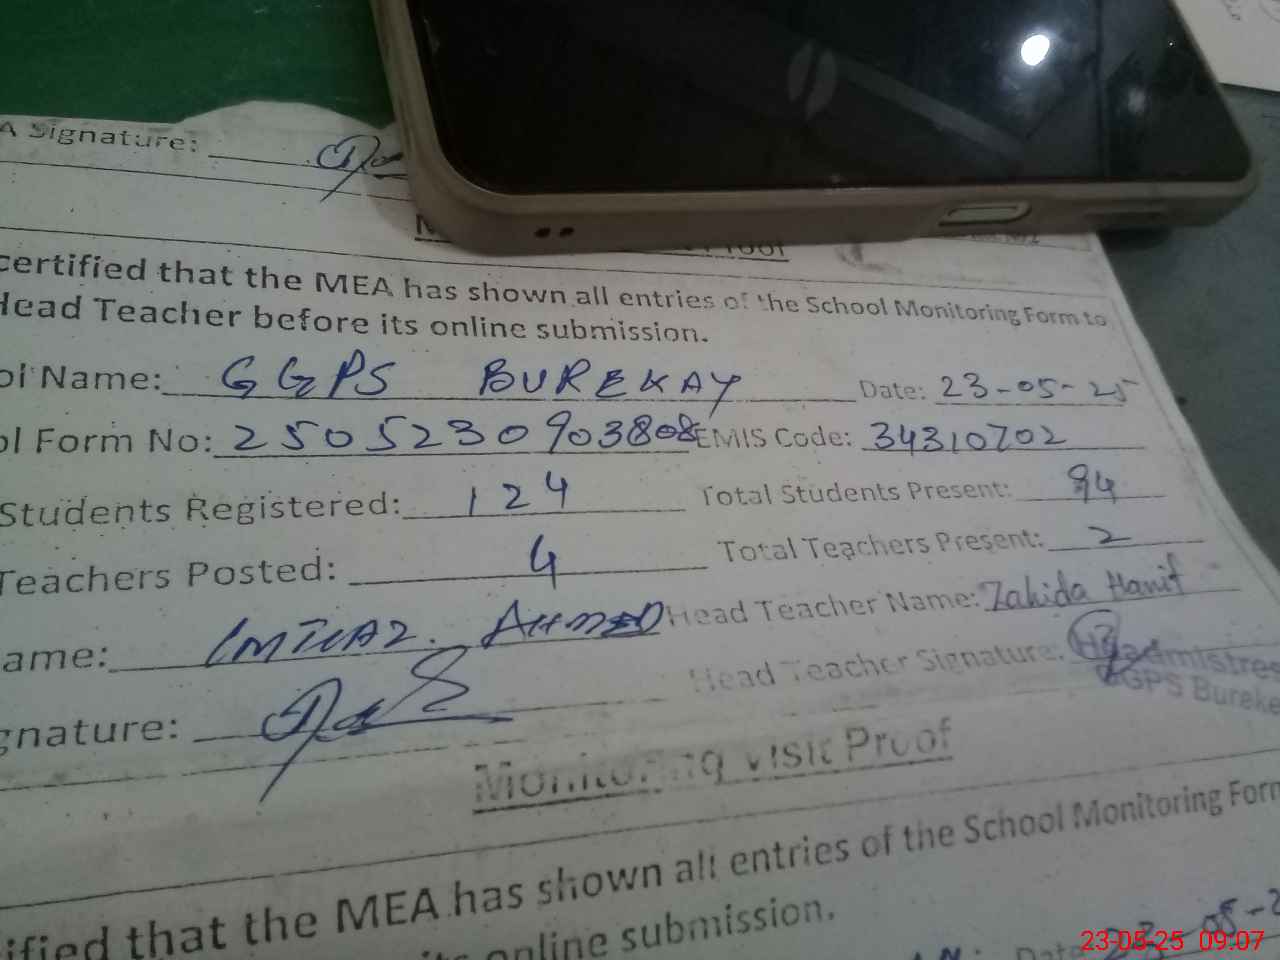 A Signature:
certified that the MEA has shown all entries of the School Monitoring Form to
Head Teacher before its online submission.
ol Name: GGPS BUREKAY Date: 23-05-25
ol Form No: 2505230903808 EMIS Code: 34310702
Students Registered: 124 Total Students Present: 94
Teachers Posted: 4 Total Teachers Present: 2
ame: IMTIAZ. AHMED Head Teacher Name: Zahida Hanif
gnature: Head Teacher Signature: Headmistres
GGPS Bureke
Monitoring Visit Proof
ified that the MEA has shown all entries of the School Monitoring Form
its online submission.
Date 23-05-2
23-05-25 09:07